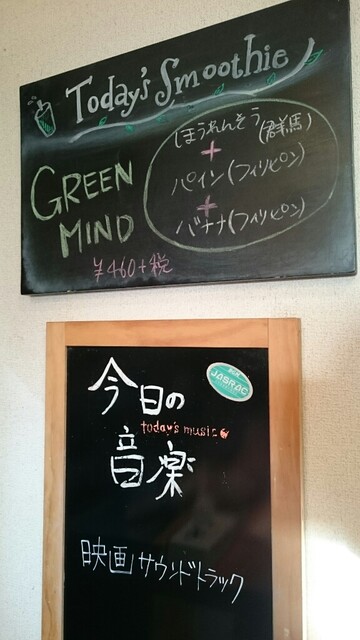 Today's Smoothie
GREEN
MIND
¥460+税
ほうれんそう
(群馬)
+
パイン(フィリピン)
+
バナナ(フィリピン)
JASRAC
今日の
today's music
音楽
映画サウンドトラック